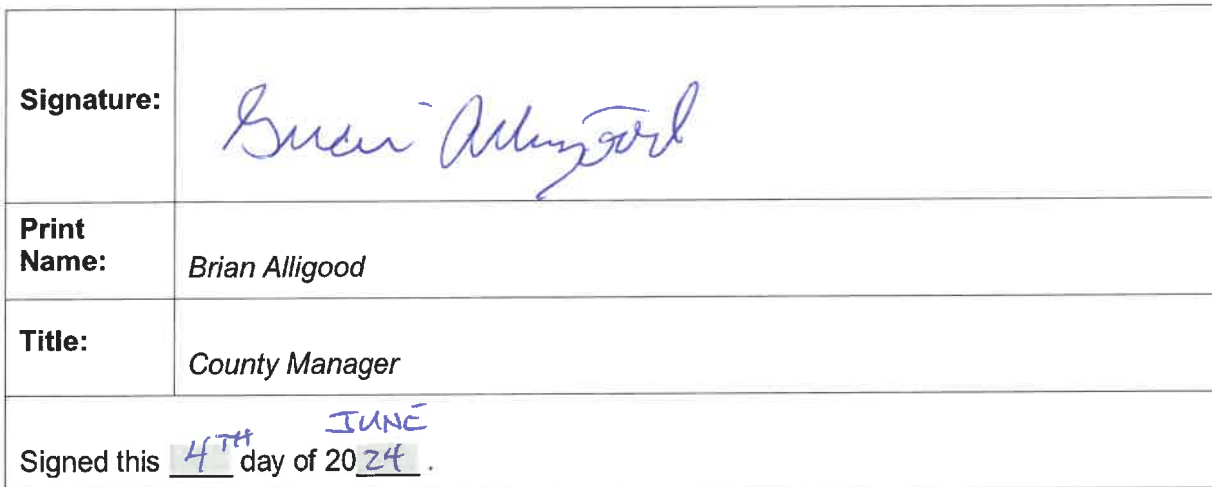 Signature: Brian Alligood
Print
Name:
Brian Alligood
Title:
County Manager
JUNE
Signed this 4TH day of 2024.